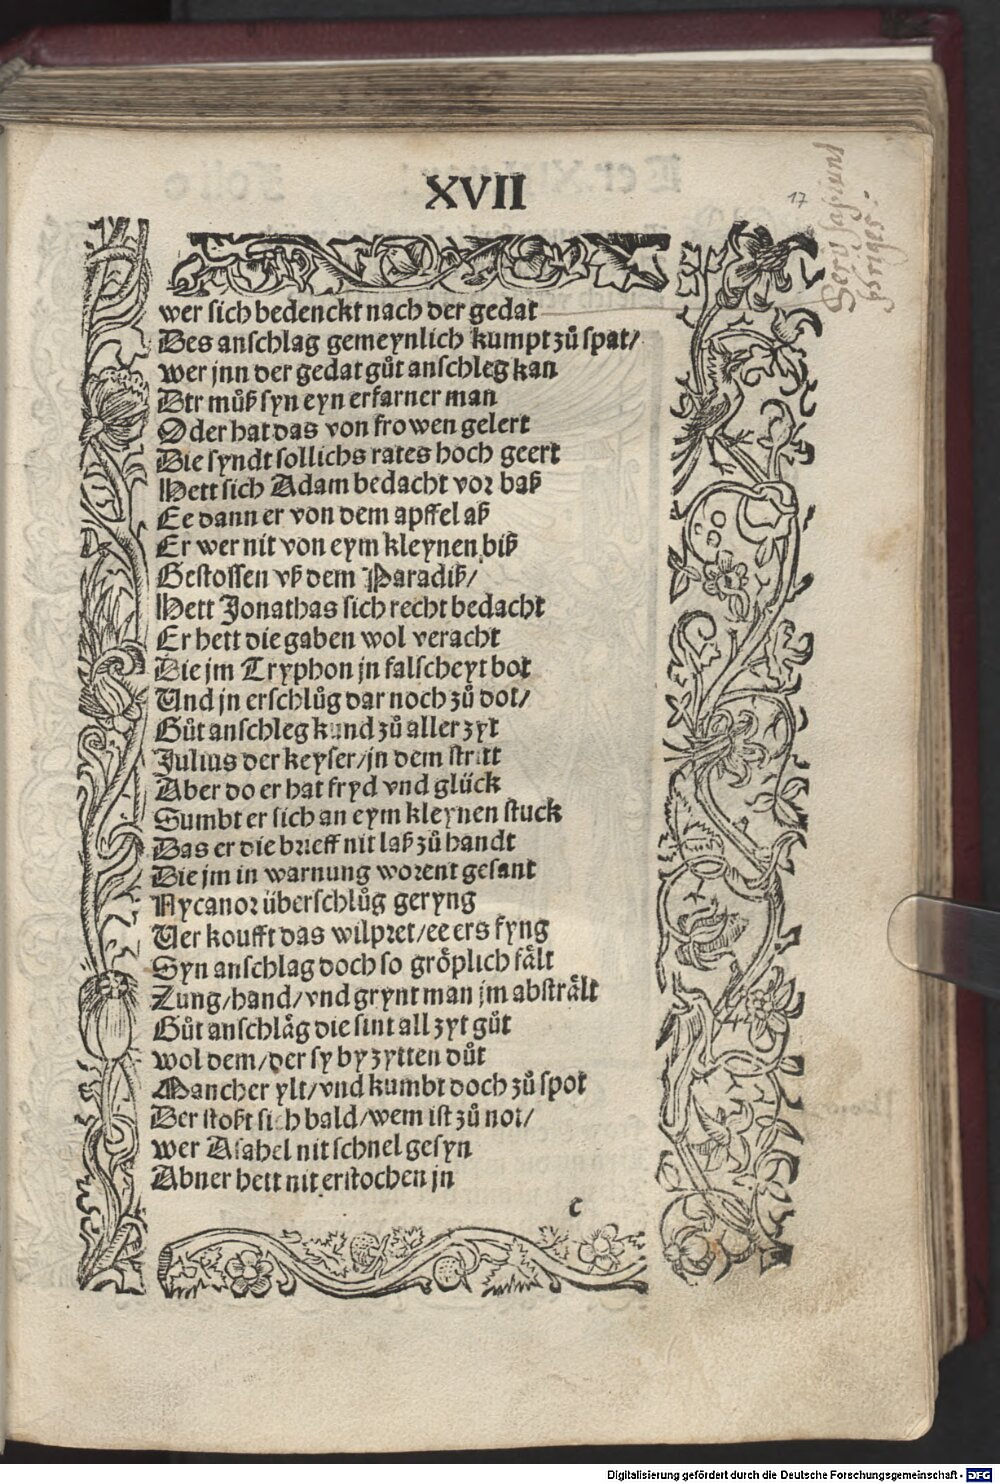 XVII
17
Sero sapiunt
phriges.
wer sich bedenckt nach der gedat
Des anschlag gemeynlich kumpt zů spat/
wer jnn der gedat gůt anschleg kan
Dtr můß syn eyn erfarner man
Oder hat das von frowen gelert
Die syndt sollichs rates hoch geert
Hett sich Adam bedacht vor baß
Ee dann er von dem apffel aß
Er wer nit von eym kleynen biß
Gestossen vß dem Paradiß/
Hett Jonathas sich recht bedacht
Er hett die gaben wol veracht
Die jm Tryphon jn falscheyt bot
Und jn erschlůg dar noch zů dot/
Gůt anschleg kund zů aller zyt
Julius der keyser/jn dem stritt
Aber do er hat fryd vnd glück
Sumbt er sich an eym kleynen stuck
Das er die brieff nit laß zů handt
Die jm in warnung worent gesant
Nycanor überschlůg geryng
Uer koufft das wilpret/ee ers fyng
Syn anschlag doch so gröplich fält
Zung/hand/vnd grynt man jm abstrält
Gůt anschläg die sint all zyt gůt
wol dem/der sy by zytten důt
Mancher ylt/vnd kumbt doch zů spot
Der stoßt sich bald/wem ist zů not/
wer Asahel nit schnel gesyn
Abner hett nit erstochen jn
c
Digitalisierung gefördert durch die Deutsche Forschungsgemeinschaft - DFG